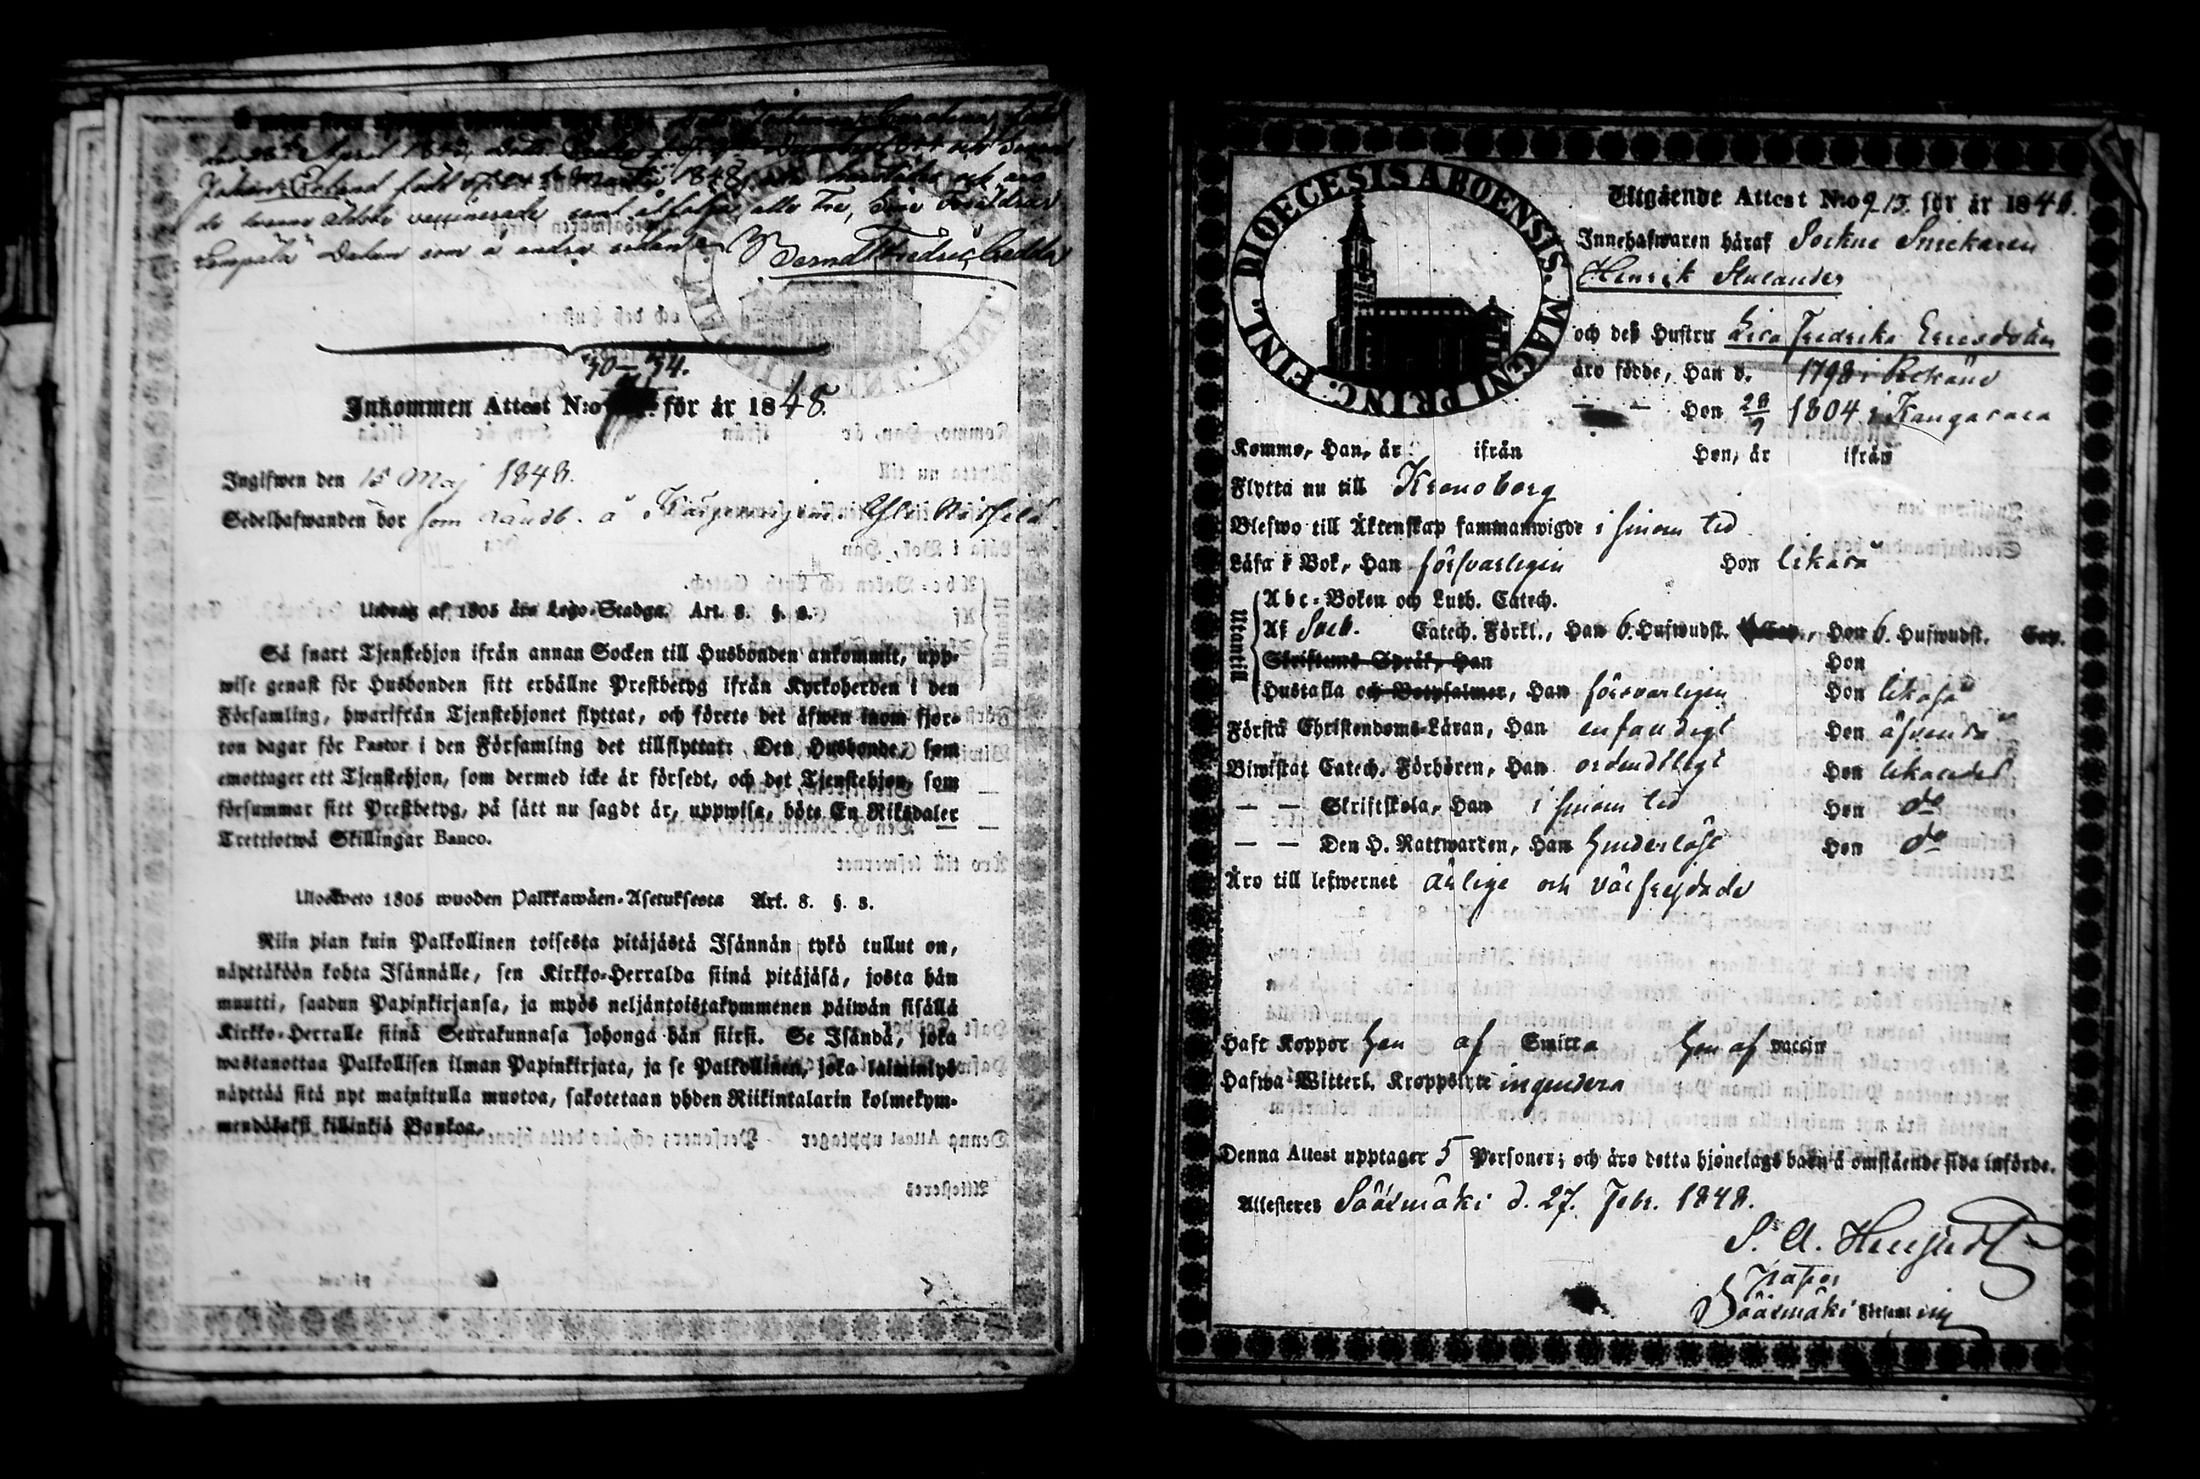 den 28de April 184
Johan Erland född d. 24de Martii 1848
de tvenne äldste vaccinerade samt åtfölja, alla Tre, Sine Föräldrar
Lempälä Datum som å andra sidan
Bernd Fredric Cedda
30–34.
Inkommen Attest N:o för år 1848.
Ingifwen den 15 Maj 1848.
Sedelhafwanden bor som
Utdrag af 1805 års Lego-Stadga. Art. 8. §. 8.
Så snart Tjenstehjon ifrån annan Socken till Husbonden ankommit, upp-
wise genast för Husbonden sitt erhållne Prestbetyg ifrån Kyrkoherden i den
Församling, hwarifrån Tjenstehjonet flyttat, och förete det äfwen inom fjor-
ton dagar för Pastor i den Församling det tillflyttat: Den Husbonde, som
emottager ett Tjenstehjon, som dermed icke är försedt, och det Tjenstehjon, som
försummar sitt Prestbetyg, på sätt nu sagdt är, uppwisa, böte En Riksdaler
Trettiotwå Skillingar Banco.
Uloswweto 1805 wuoden Palkkawäen-Asetuksesta Art. 8. §. 8.
Niin pian kuin Palkollinen toisesta pitäjästä Isännän tykö tullut on,
näyttäköön kohta Isännälle, sen Kirkko-Herralda siinä pitäjäsä, josta hän
muutti, saadun Papinkirjansa, ja myös neljäntoistakymmenen päiwän sisällä
Kirkko-Herralle siinä Seurakunnasa johonga hän siirsi. Se Isändä, joka
wastanottaa Palkollisen ilman Papinkirjata, ja se Palkollinen, joka laiminlyö
näyttää sitä nyt mainitulla muotoa, sakotetaan yhden Riikintalarin kolmekym-
mendäkaksi killinkiä Bankoa.
FINL. DIOECESIS ABOENSIS. MAGNI PRINC.
Utgående Attest N:o 9.13. för år 1848.
Innehafwaren häraf Sockne Snickaren
Henrik Stulander
och deß Hustru Lisa Fredrika Ericsdotter
äro födde, Han d. 1798 i
— — Hon 28/9 1804 i Kangasala
Kommo, Han, år ifrån Hon, år ifrån
Flytta nu till Kronoborg
Blefwo till Äktenskap sammanwigde i sinom tid
Läsa i Bok, Han försvarligen Hon likaså
Utantill
Abc-Boken och Luth. Catech.
Af Sveb. Catech. Förkl., Han 6. Hufwudst. Cap., Hon 6. Hufwudst. Cap.
Skriftenes Språk, Han Hon
Hustafla och Botpsalmer, Han försvarligen Hon likaså
Förstå Christendoms-Läran, Han enfaldigt Hon äfvenså
Biwistat Catech. Förhören, Han ordentligt Hon likaledes
— — Skriftskola, Han i sinom tid Hon do
— — Den H. Nattwarden, Han hinderlöst Hon do
Äro till lefwernet ärlige och välfrejdade
Haft Koppor han af Smitta hon af vaccin
Hafwa Witterl. Kroppslyte ingendera
Denna Attest upptager 5 Personer; och äro detta hjonelags barn å omstående sida införde.
Attesteras Sääxmäki d. 27. Febr. 1848.
Pastor
Sääxmäki Församl